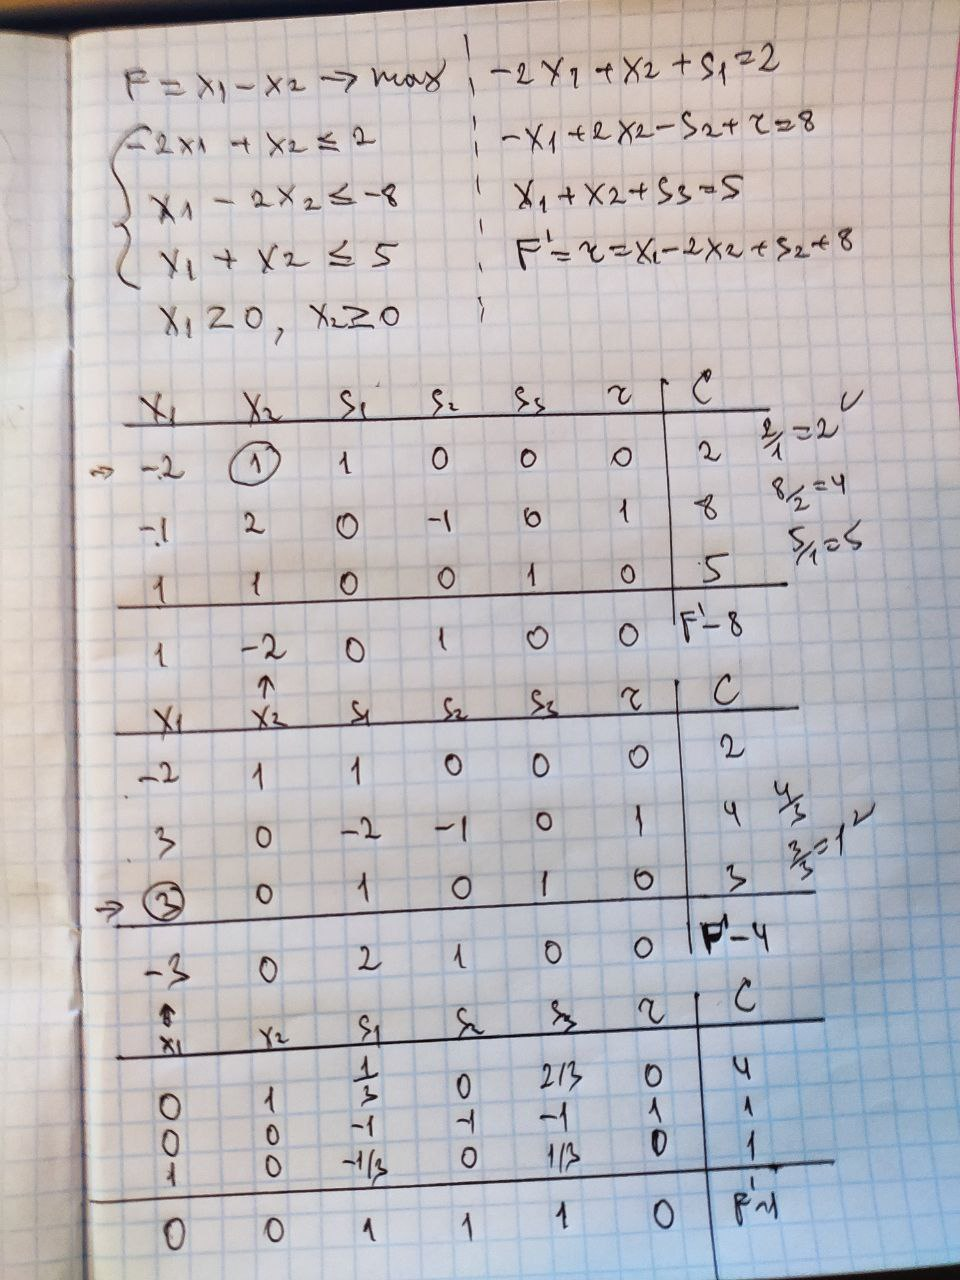 F = x₁ - x₂ → max
-2x₁ + x₂ ≤ 2
x₁ - 2x₂ ≤ -8
x₁ + x₂ ≤ 5
x₁ ≥ 0, x₂ ≥ 0
-2x₁ + x₂ + s₁ = 2
-x₁ + 2x₂ - s₂ + r = 8
x₁ + x₂ + s₃ = 5
F' = r = x₁ - 2x₂ + s₂ + 8
x₁ x₂ s₁ s₂ s₃ r | C
→ -2 1 1 0 0 0 | 2 2/1 = 2 ✓
-1 2 0 -1 0 1 | 8 8/2 = 4
1 1 0 0 1 0 | 5 5/1 = 5
1 -2 0 1 0 0 | F' - 8
↑
x₁ x₂ s₁ s₂ s₃ r | C
-2 1 1 0 0 0 | 2
3 0 -2 -1 0 1 | 4 4/3
→ 3 0 1 0 1 0 | 3 3/3 = 1 ✓
-3 0 2 1 0 0 | F' - 4
↑
x₁ x₂ s₁ s₂ s₃ r | C
0 1 1/3 0 2/3 0 | 4
0 0 -1 -1 -1 1 | 1
1 0 -1/3 0 1/3 0 | 1
0 0 1 1 1 0 | F' - 1